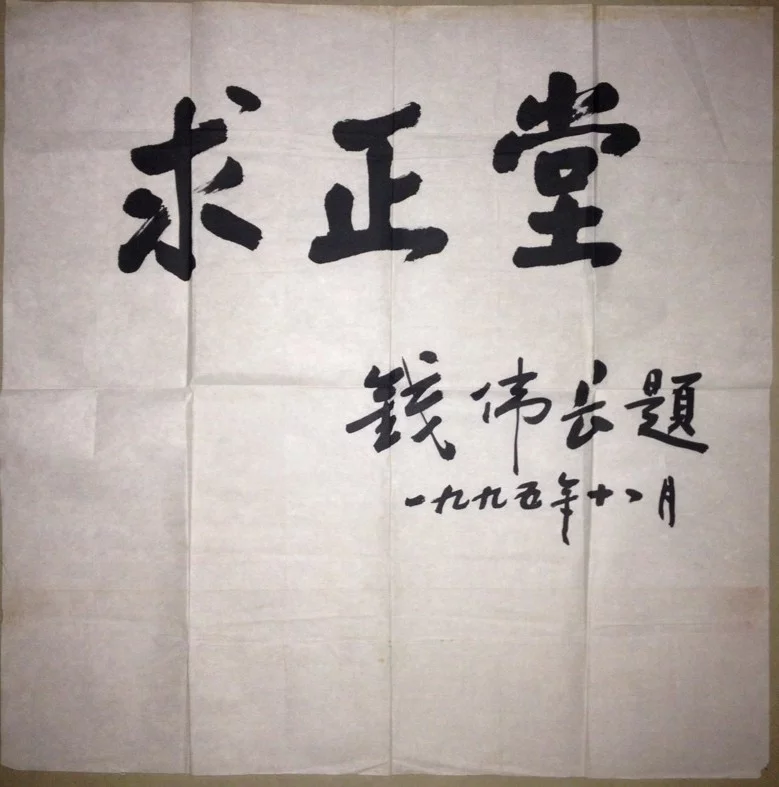 求正堂
錢伟长題
一九九五年十二月